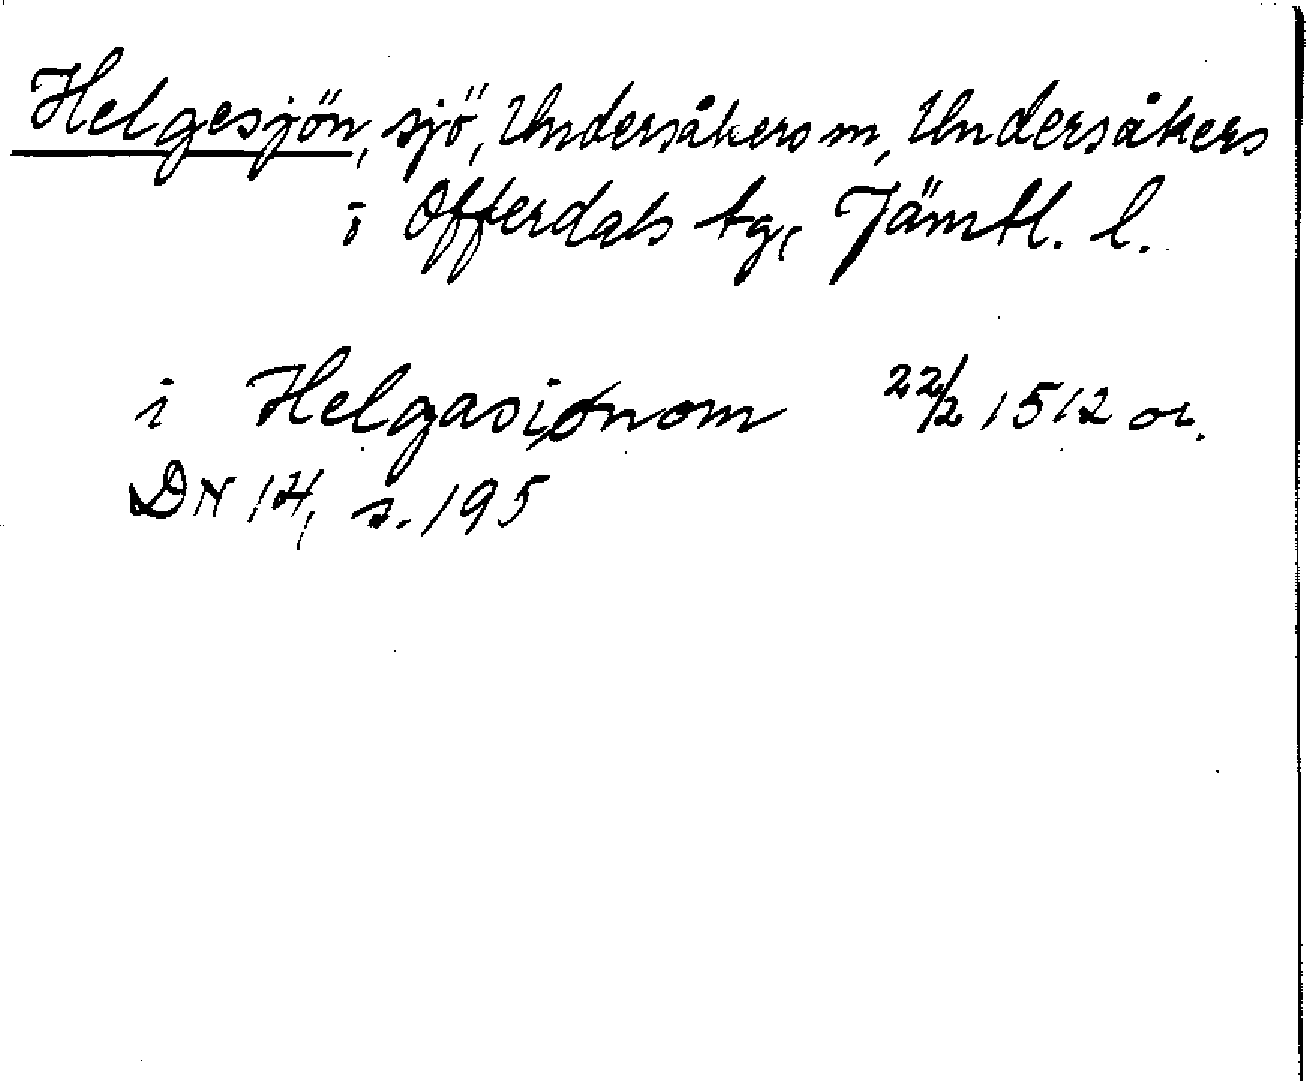 Helgesjön, sjö, Undersåkers sn, Undersåkers
o Offerdals tg, Jämtl. l.
i Helgasiønom 22/2 1512 or.
DN 14, s. 195